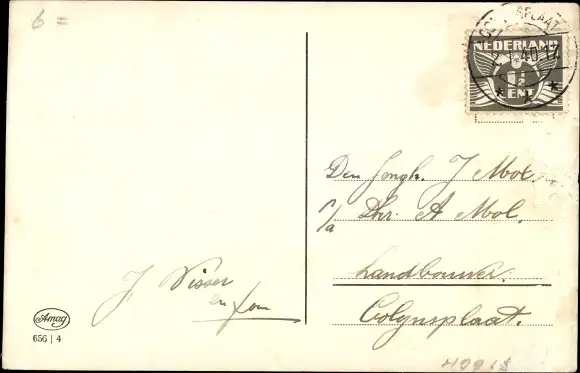 6 =
NEDERLAND
1½
CENT
40.17
Den Jongh. J Mol.
p/a Dhr. A Mol.
Landbouwer.
Colynsplaat.
J Visser
en
Amag
656 | 4